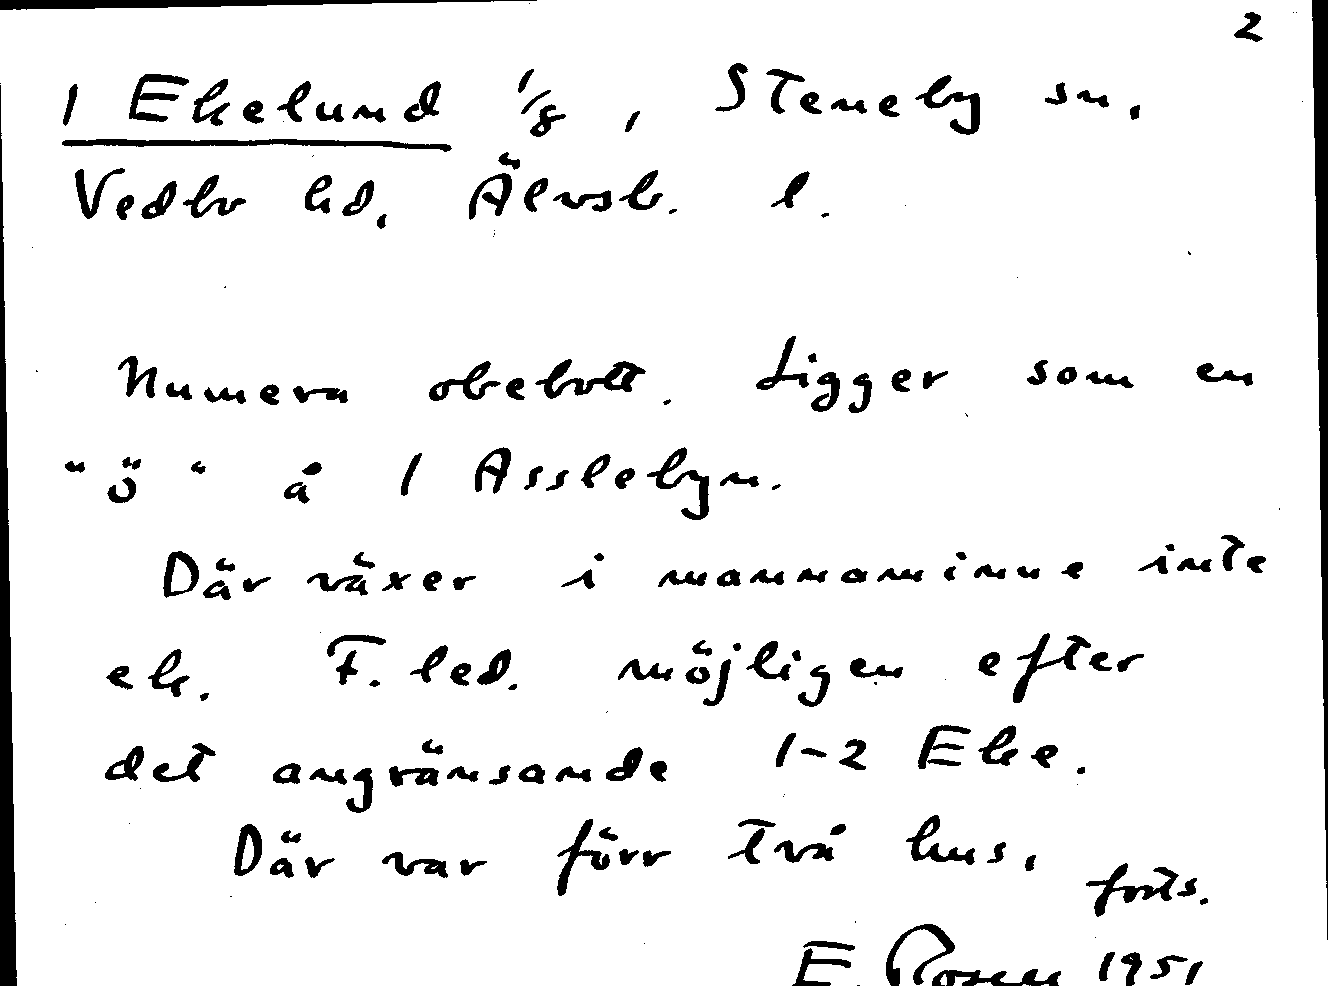 2
1 Ekelund 1/8, Steneby sn,
Vedbo hd, Älvsb. l.
Numera obebott. Ligger som en
"ö" å 1 Asslebyn.
Där växer i mannaminne inte
ek. F. led. möjligen efter
det angränsande 1-2 Eke.
Där var förr två hus,
forts.
E. Rosen 1951